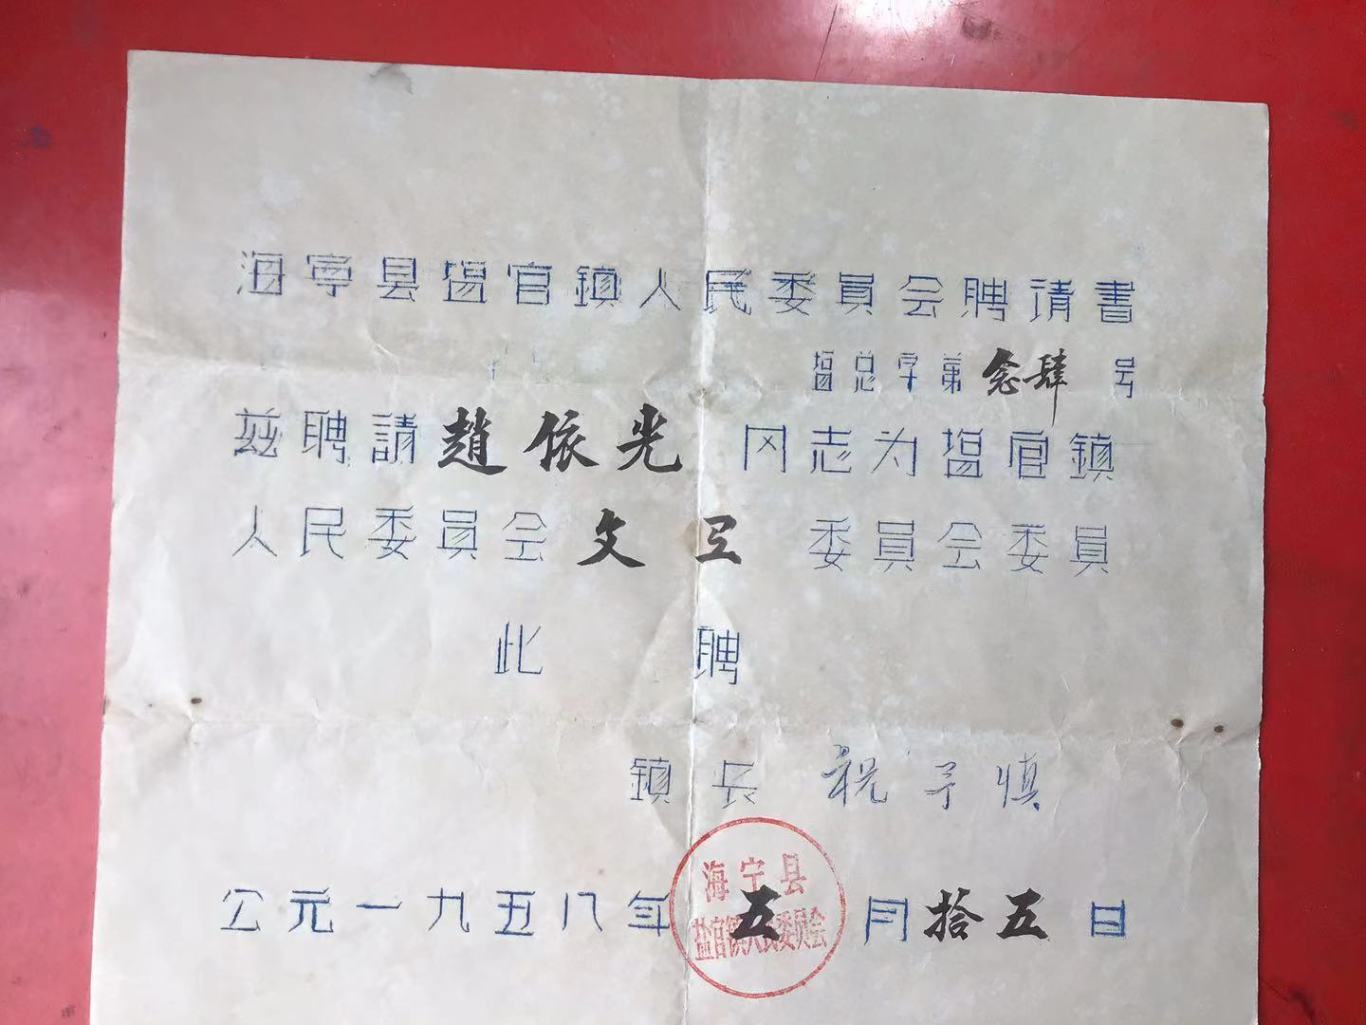 海宁县塩官鎮人民委員会聘请書
塩总字第念肆号
茲聘請趙依光同志为塩官鎮
人民委員会文卫委員会委員
此聘
鎮长 祝 慎
海宁县
盐官镇人民委员会
公元一九五八年五月拾五日